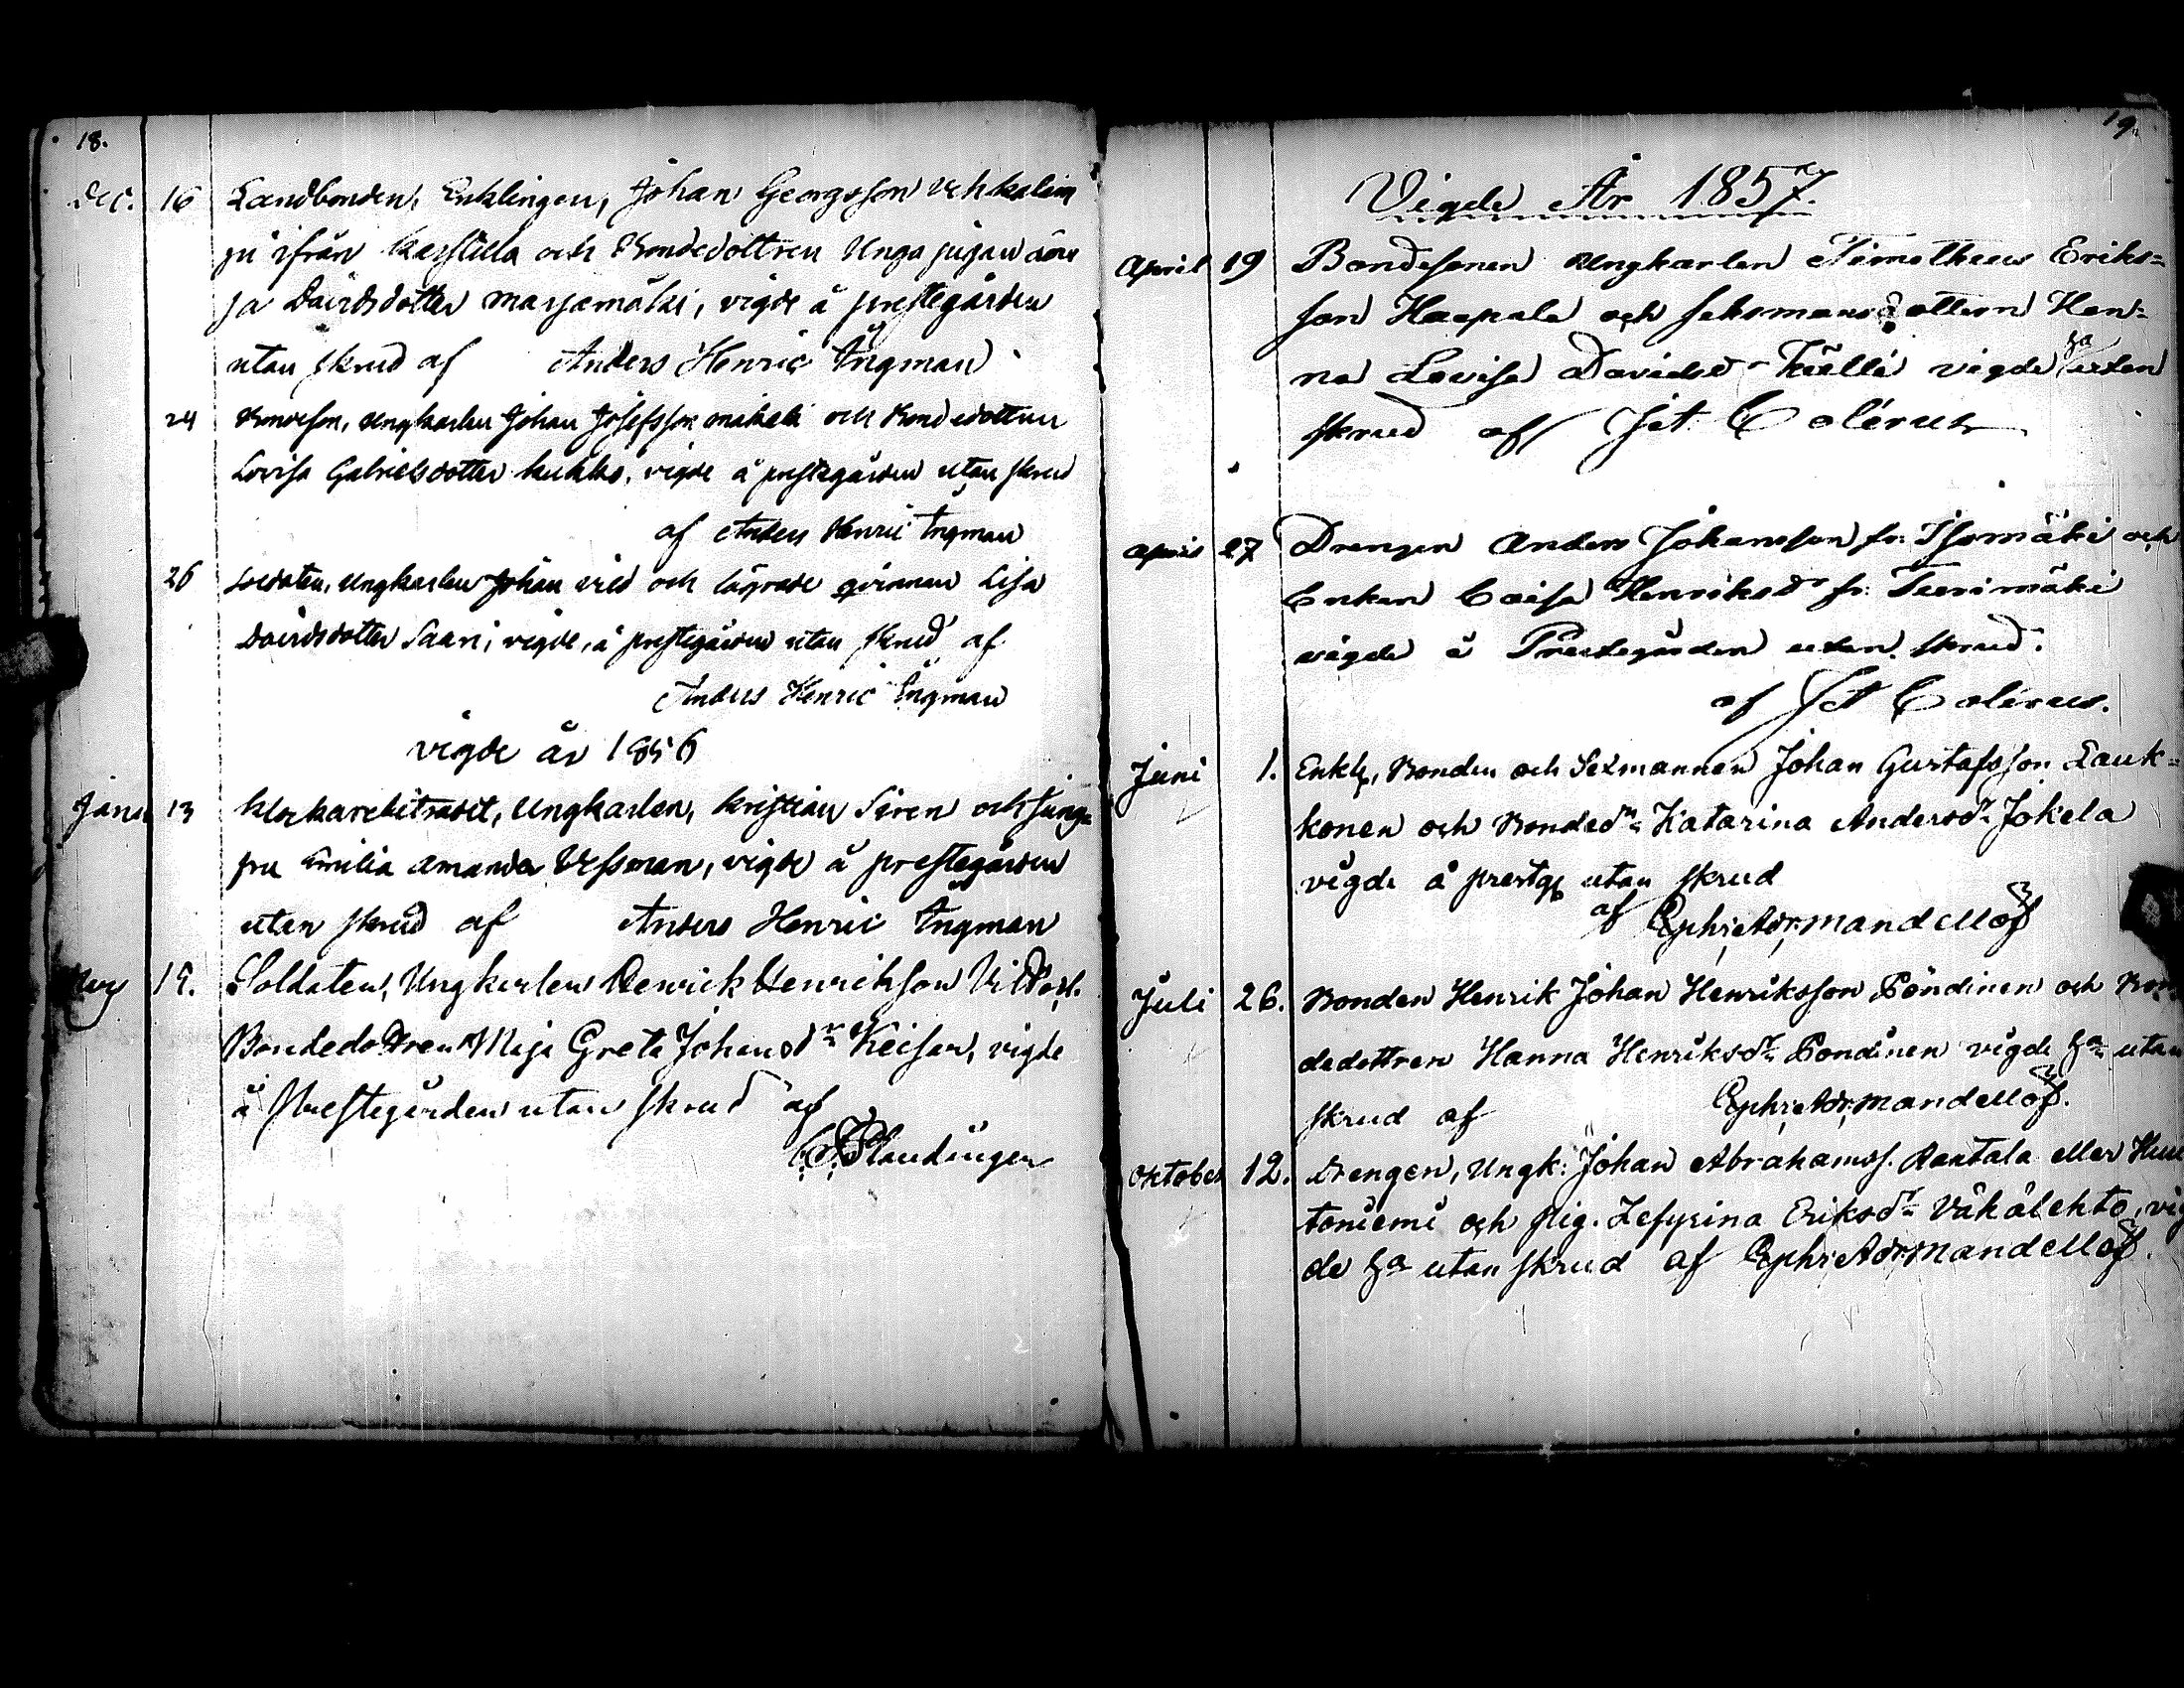 18.
Dec. 16 Landbonden, Enklingen, Johan Georgsson Vehkalam
pi ifrån Karstula och Bondedottren Unga pigan
sa Davidsdotter Marjamäki, vigde å prestegården
utan skrud af Anders Henric Ingman
24 Bondeson, Ungkarlen Johan Josefsson Mäkelä och Bondedottren
Lovisa Gabrielsdotter Kukko, vigde å prestegården utan skrud
af Anders Henric Ingman
26 Soldaten, Ungkarlen Johan Vild och lägrade qvinnan Lisa
Davidsdotter Saari, vigde, å prestegården utan skrud af
Anders Henric Ingman
vigde år 1856
Janu 13 Klockarebiträdet, Ungkarlen, Kristian Siren och Jung-
fru Emilia Amanda Vessman, vigde å prestegården
utan skrud af Anders Henric Ingman
19. Soldaten, Ungkarlen Henrick Henrikson Vild och
Bondedottren Maja Greta Johansdr Keisar, vigde
å Prestegården utan skrud af

19.
Vigde År 1857.
April 19 Bondesonen Ungkarlen Timotheus Eriks=
son Haapala och Soknemansdottren Han=
na Lovisa Davidsdr Källi vigde ha utan
skrud af J A Colérus
April 27 Drengen Anders Johansson fr. Isomäki och
Enkan Caisa Henriksdr fr. Teerimäki
vigde å Prestegården utan skrud.
af J A Colérus.
Juni 1. Enkl, Bonden och Sexmannen Johan Gustafsson Lauk=
konen och Bondedr Katarina Andersdr Jokela
vigde å prestg utan skrud
af Ephr. Adr. Mandellöf
Juli 26. Bonden Henrik Johan Henriksson Pöndinen och Bon
dedottren Hanna Henriksdr Pöndinen vigde ha utan
skrud af Ephr. Adr. Mandellöf.
Oktober 12. Drengen, Ungk: Johan Abrahamss. Rantala eller Huu
toniemi och pig. Zefyrina Eriksdr Vähälehto, vig
de ha utan skrud af Ephr. Adr. Mandellöf.